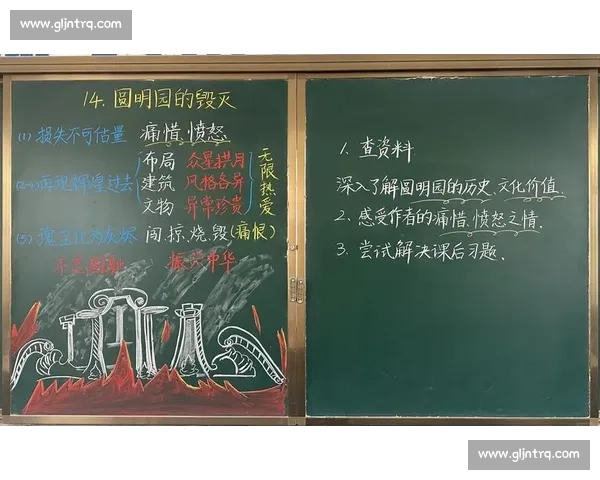 www.gljntrq.com
14. 圆明园的毁灭
(1) 损失不可估量 痛惜、愤怒
(2-4) 再现辉煌过去 布局 众星拱月
建筑 风格各异
文物 异常珍贵
无限热爱
(5) 瑰宝化为灰烬 闯、掠、烧、毁(痛恨)
不忘国耻 振兴中华
1. 查资料
深入了解圆明园的历史、文化价值.
2. 感受作者的痛惜、愤怒之情.
3. 尝试解决课后习题.
www.gljntrq.com
www.gljntrq.com